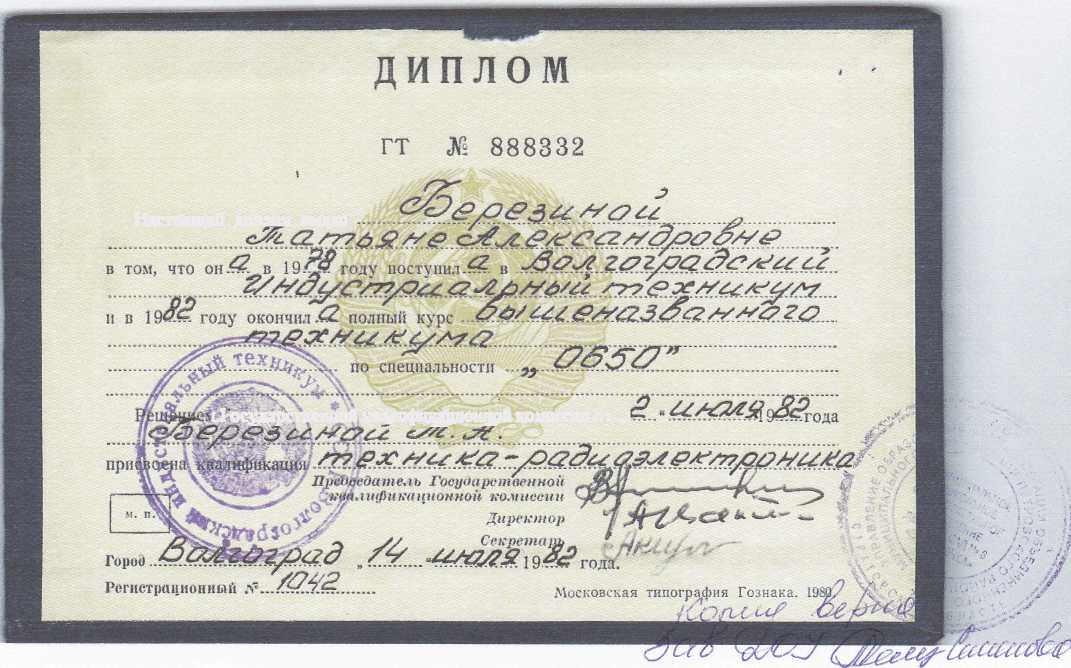 ДИПЛОМ
ГТ № 888332
Настоящий диплом выдан Березиной
Татьяне Александровне
в том, что он а в 1978 году поступил а в Волгоградский
Индустриальный техникум
и в 1982 году окончил а полный курс вышеназванного
техникума
по специальности „0650"
Решением Государственной квалификационной комиссии 2 июля 1982 года
Березиной Т.А.
присвоена квалификация техника-радиоэлектроника
Председатель Государственной
квалификационной комиссии
Директор
Секретарь
м. п.
Город Волгоград „14 июля 1982 года.
Регистрационный № 1042
Московская типография Гознака. 1980.
Волгоградский индустриальный техникум
Копия верна
Зав ДОУ